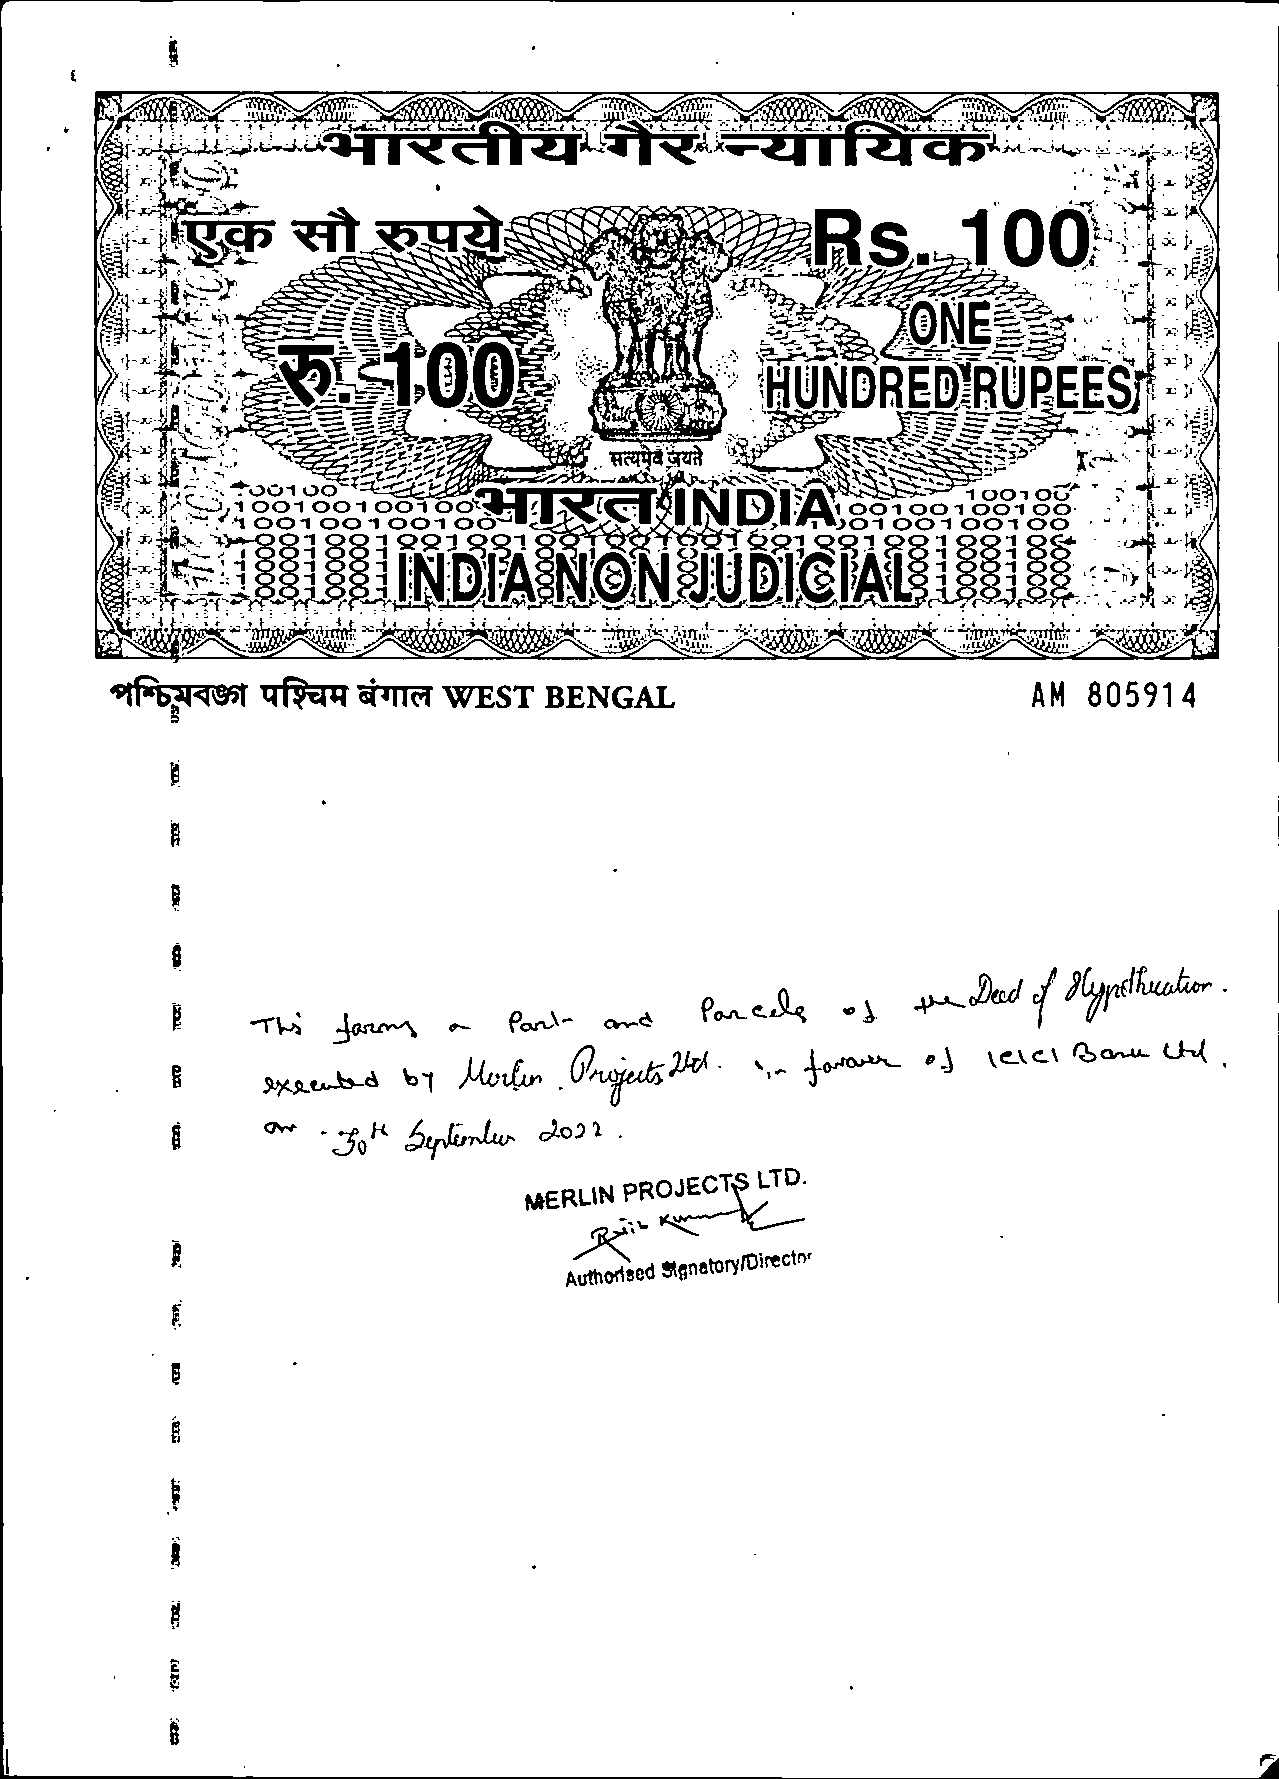 भारतीय गैर न्यायिक
एक सौ रुपये
Rs. 100
रु. 100
ONE
HUNDRED RUPEES
सत्यमेव जयते
भारत INDIA
INDIA NON JUDICIAL
পশ্চিমবঙ্গ पश्चिम बंगाल WEST BENGAL
AM 805914
This forms a Part and Parcels of the Deed of Hypothecation.
executed by Merlin Projects Ltd. in favour of ICICI Bank Ltd.
on 30th September 2022.
MERLIN PROJECTS LTD.
Authorised Signatory/Director